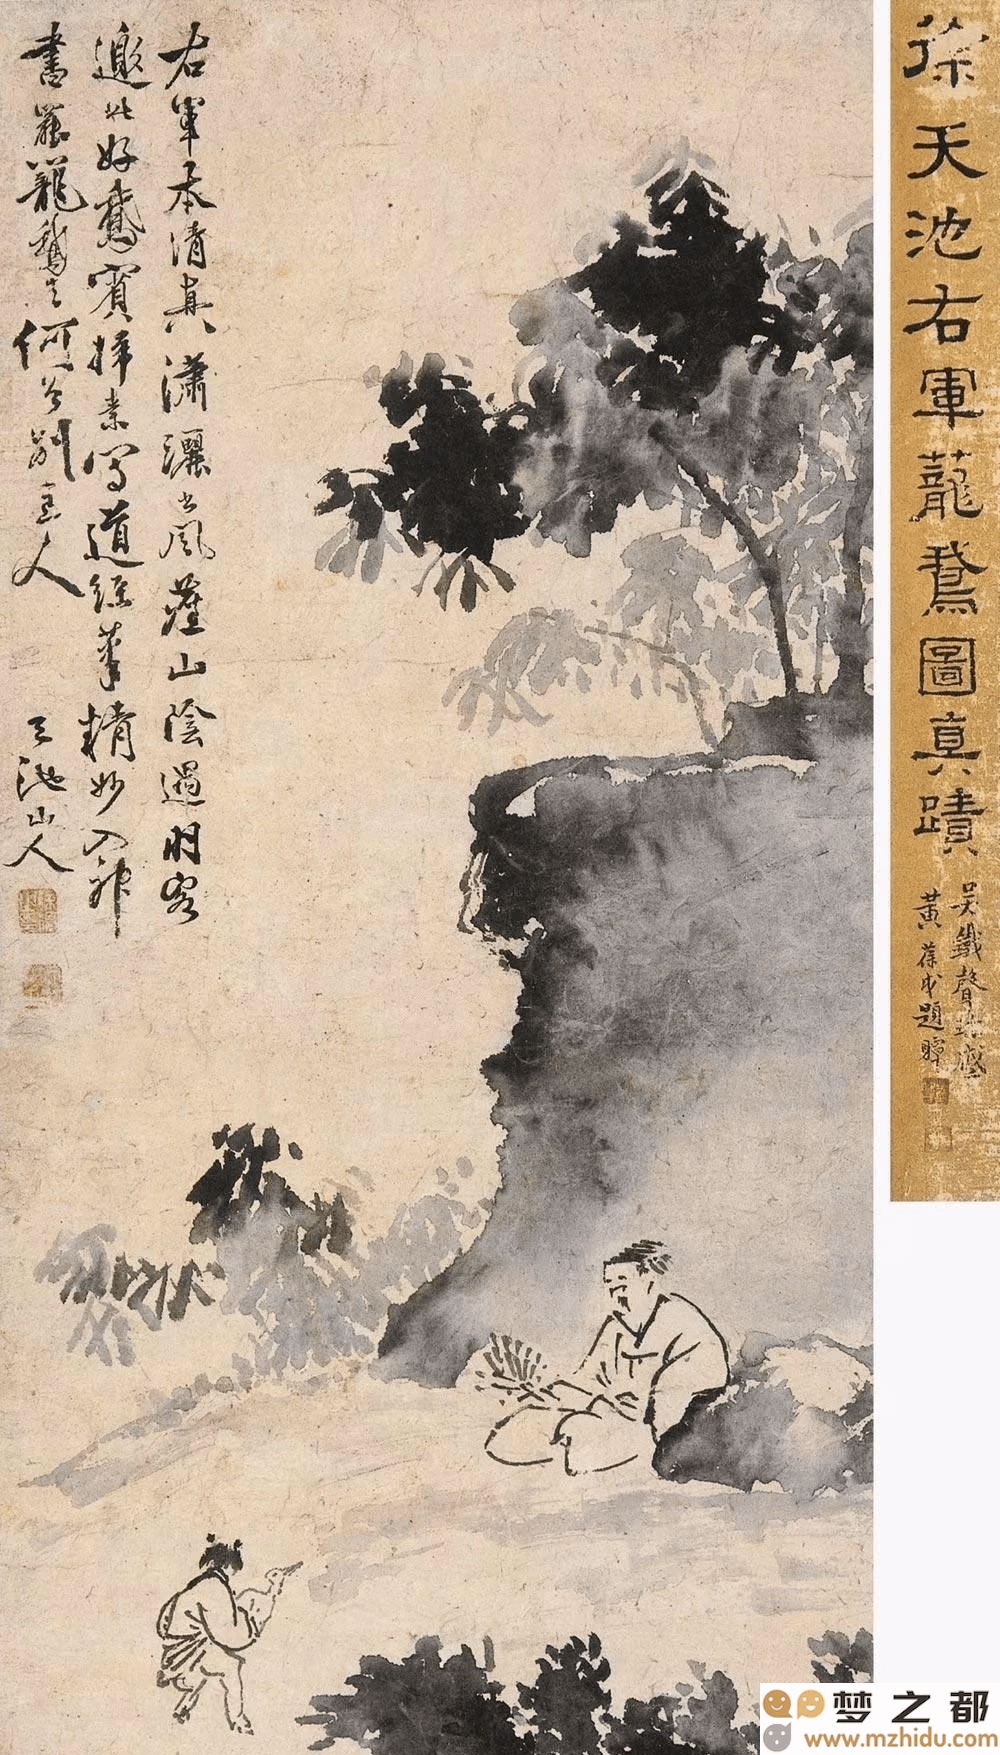 徐天池右軍蘢鵞圖真蹟
吳鐵聲珍藏
黃葆戉題贉
右軍本清真瀟灑出風塵山陰遇羽客
邀此好鵞賓掃素寫道經筆精妙入神
書罷籠鵞去何曾別主人
天池山人
梦之都
www.mzhidu.com